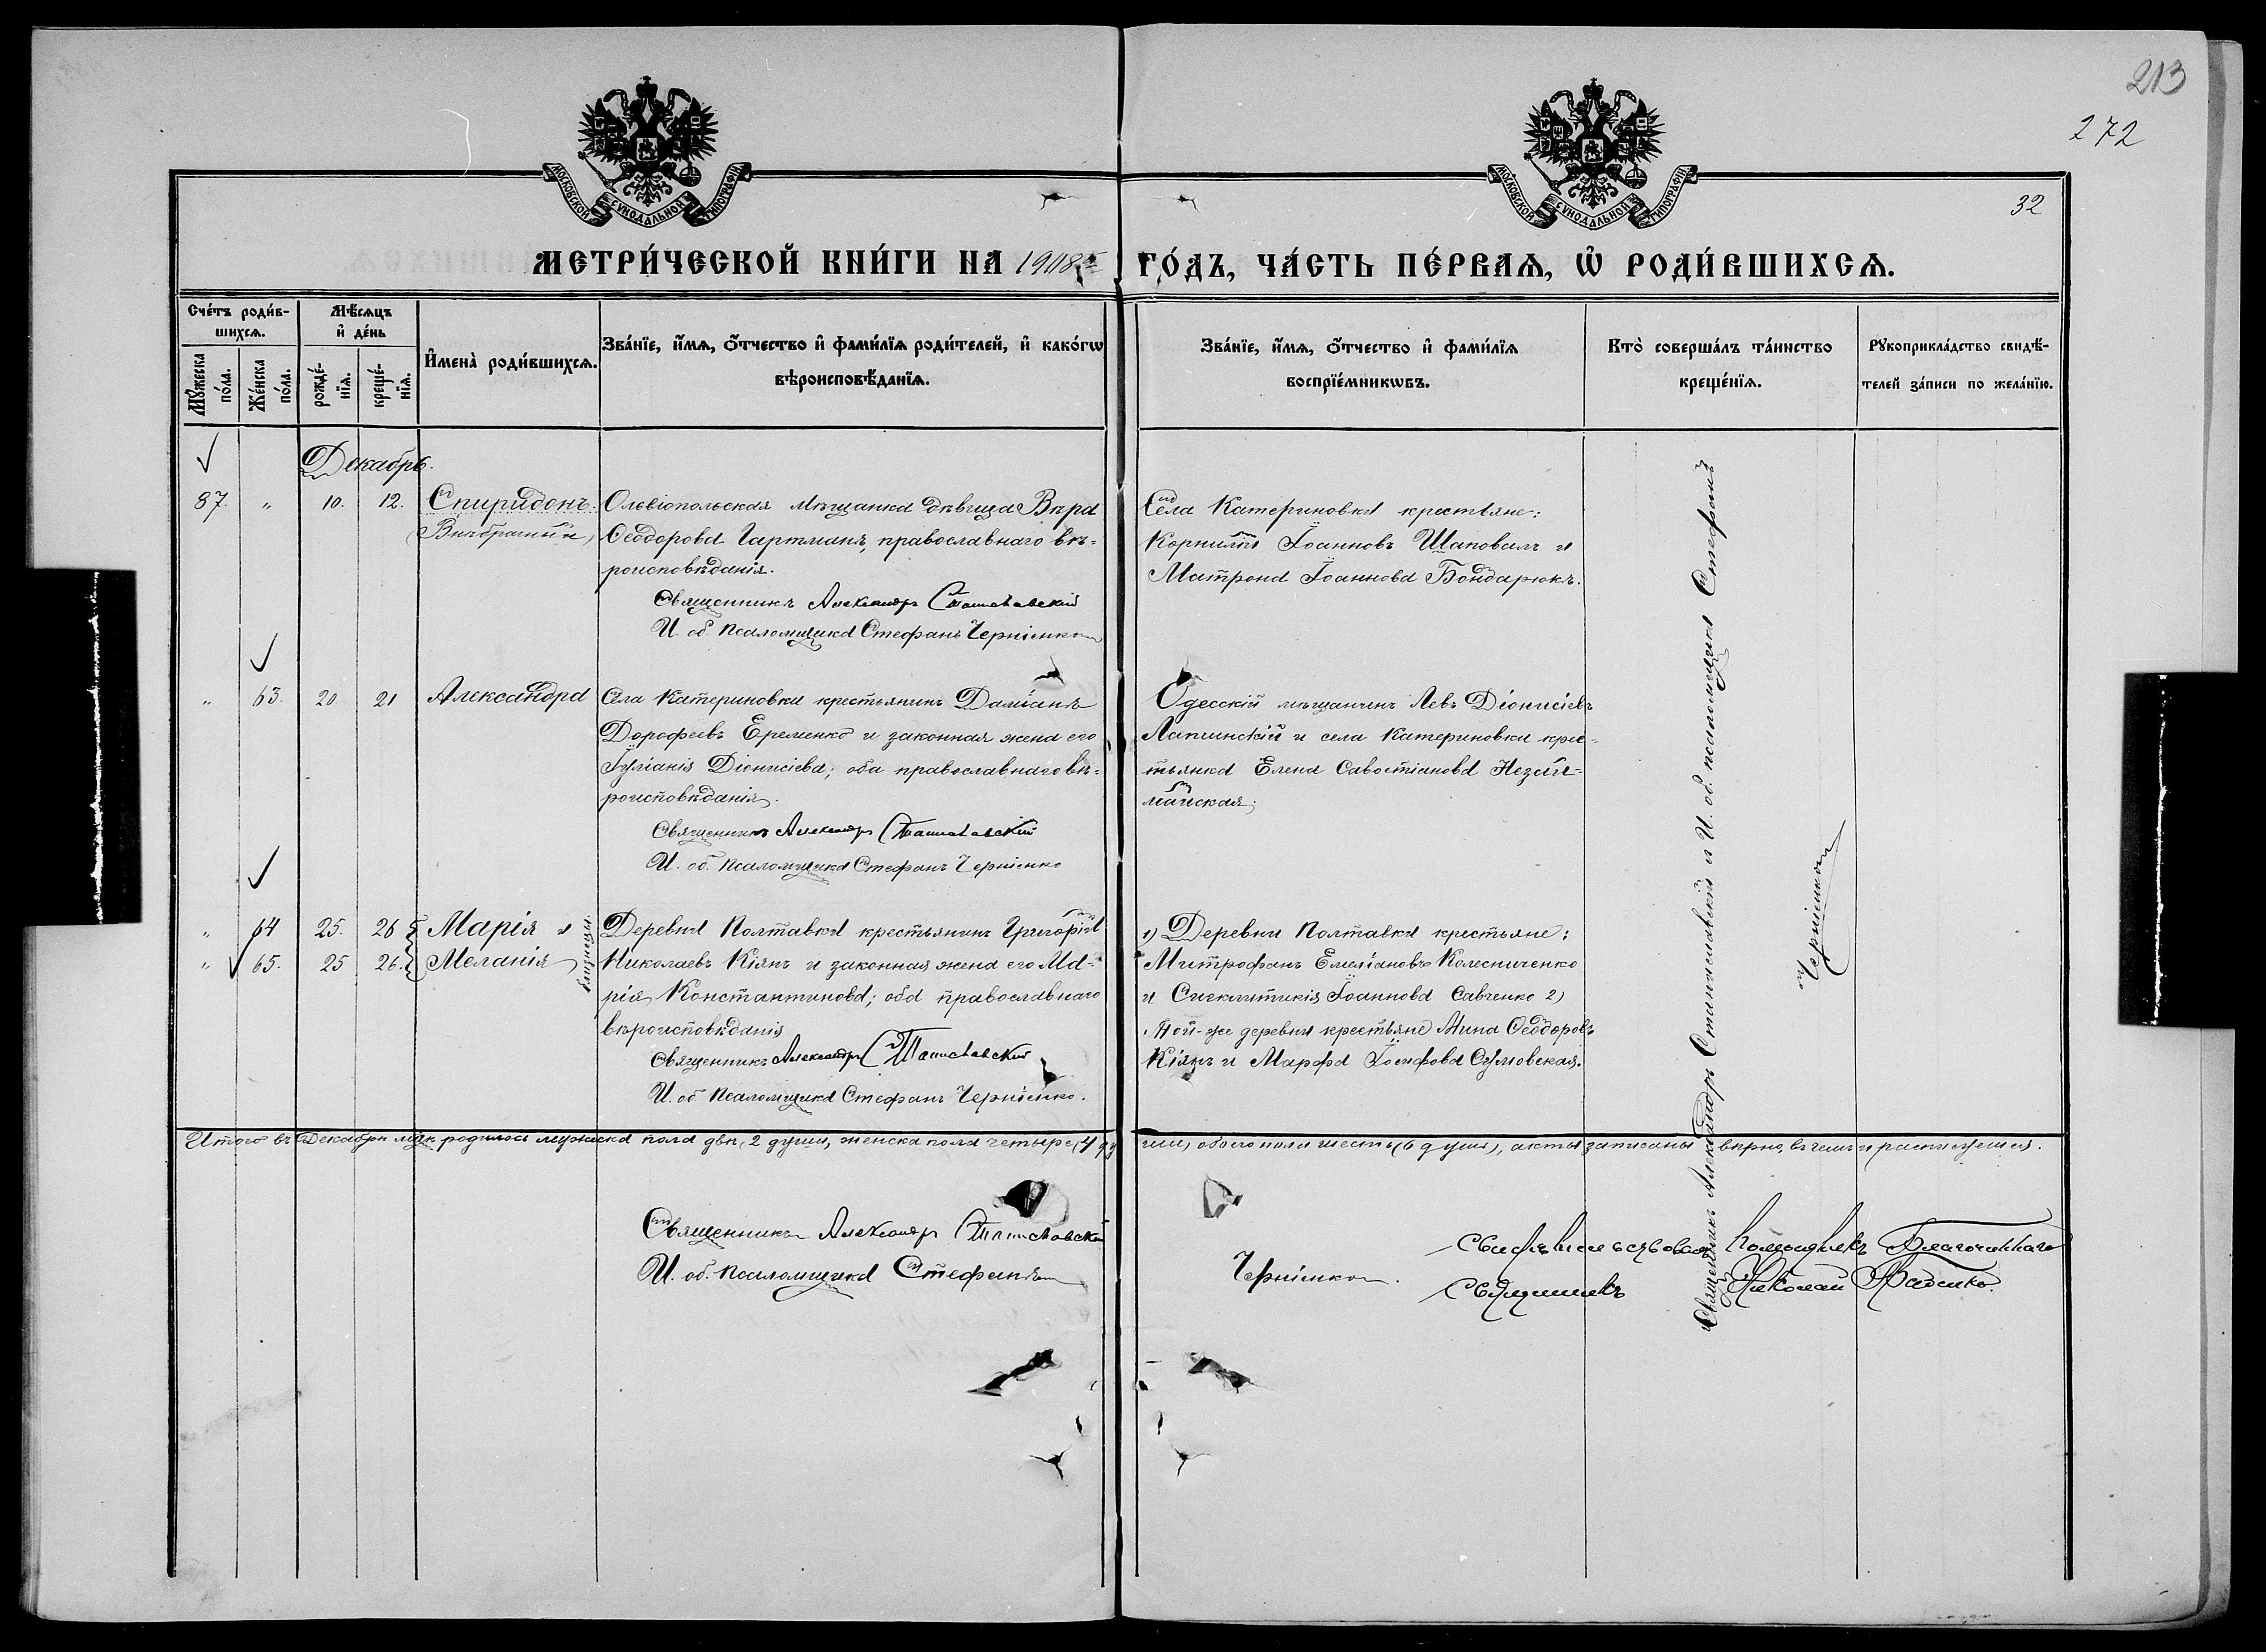 213
272
32
МОСКОВСКОЙ СУНОДАЛЬНОЙ ТИПОГРАФІИ
МОСКОВСКОЙ СУНОДАЛЬНОЙ ТИПОГРАФІИ
МЕТРИ́ЧЕСКОЙ КНИ́ГИ НА 1908 ГО́ДЪ, ЧА́СТЬ ПЕ́РВАѦ, Ѡ҆ РОДИ́ВШИХСѦ.
Сче́тъ роди́в-
шихсѧ.
Мѣ́сѧцъ
и҆ де́нь
Мꙋ́жеска
по́ла.
Же́нска
по́ла.
рожде́-
нїѧ.
креще́-
нїѧ.
И҆мена̀ роди́вшихсѧ.
Зва́нїе, и҆́мѧ, ѻ҆́тчество и҆ фами́лїѧ роди́телей, и҆ како́гѡ
вѣроисповѣ́данїѧ.
Зва́нїе, и҆́мѧ, ѻ҆́тчество и҆ фами́лїѧ
воспрїе́мникѡвъ.
Кто̀ соверша́лъ та́инство
креще́нїѧ.
Рꙋкоприкла́дство свидѣ́-
телей за́писи по жела́нїю.
Декабрь.
87. " 10. 12. Спиридонъ.
(Внѣбрачный)
Ольвіопольская мѣщанка дѣвица Вѣра
Ѳеодорова Гартманъ, православнаго вѣ-
роисповѣданія.
Священникъ Александръ Станиславскій
И. об. псаломщика Стефанъ Черніенко
Села Катериновки крестьяне:
Корнилій Іоанновъ Шаповалъ и
Матрона Іоаннова Бондарюкъ.
" 63. 20. 21 Александра
Села Катериновки крестьянинъ Даміанъ
Дорофеевъ Еременко и законная жена его
Іуліанія Діонисіева; оба православнаго вѣ-
роисповѣданія.
Священникъ Александръ Станиславскій
И. об. псаломщика Стефанъ Черніенко
Одесскій мѣщанинъ Левъ Діонисіевъ
Лапчинскій и села Катериновки крес-
тьянка Елена Савостіанова Незай-
майская.
" 64 25. 26 Марія и
" 65. 25 26. Меланія
близнецы.
Деревни Полтавки крестьянинъ Григорій
Николаевъ Кіянъ и законная жена его Ма-
рія Константинова; оба православнаго
вѣроисповѣданія
Священникъ Александръ Станиславскій
И. об. псаломщика Стефанъ Черніенко.
1) Деревни Полтавки крестьяне:
Митрофанъ Емеліановъ Колесниченко
и Сигклитикія Іоаннова Савченко 2)
Той-же деревни крестьяне Мина Ѳеодоровъ
Кіянъ и Марфа Іосифова Сумовская.
Священникъ Александръ Станиславскій и И. об. псаломщика Стефанъ
Черніенко
Итого въ Декабрѣ м-цѣ родилось мужеска пола двѣ, 2 души, женска пола четыре (4 ду
ши) обоего пола шесть (6 душъ), акты записаны вѣрно, въ чемъ и расписуемся.
Священникъ Александръ Станиславскій
И. об. псаломщика Стефанъ
Черніенко.
Свидѣтельствовалъ Помощникъ Благочиннаго
Священникъ Николай